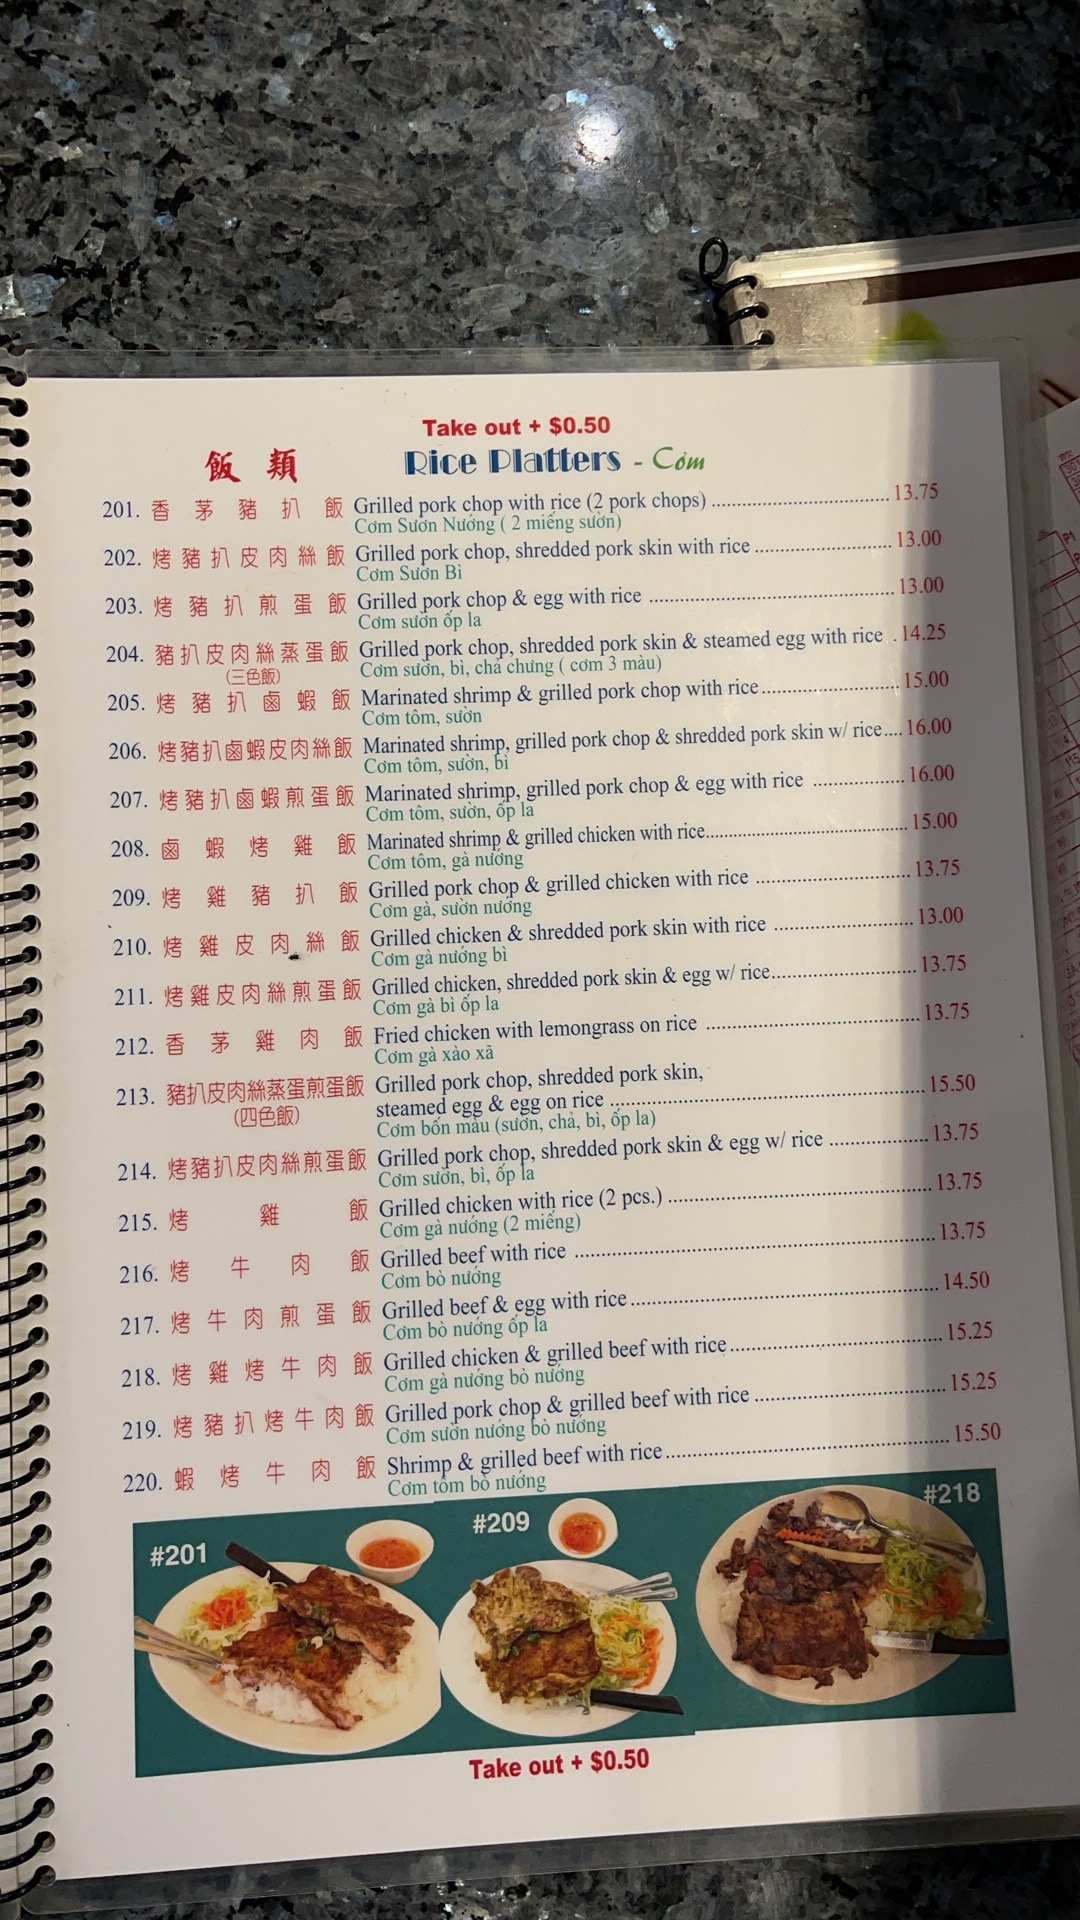 Take out + $0.50
飯 類 Rice Platters - Cơm
201. 香茅豬扒飯 Grilled pork chop with rice (2 pork chops) 13.75
Cơm Sườn Nướng ( 2 miếng sườn)
202. 烤豬扒皮肉絲飯 Grilled pork chop, shredded pork skin with rice 13.00
Cơm Sườn Bì
203. 烤豬扒煎蛋飯 Grilled pork chop & egg with rice 13.00
Cơm sườn ốp la
204. 豬扒皮肉絲蒸蛋飯 Grilled pork chop, shredded pork skin & steamed egg with rice 14.25
(三色飯) Cơm sườn, bì, chả chưng ( cơm 3 màu)
205. 烤豬扒鹵蝦飯 Marinated shrimp & grilled pork chop with rice 15.00
Cơm tôm, sườn
206. 烤豬扒鹵蝦皮肉絲飯 Marinated shrimp, grilled pork chop & shredded pork skin w/ rice 16.00
Cơm tôm, sườn, bì
207. 烤豬扒鹵蝦煎蛋飯 Marinated shrimp, grilled pork chop & egg with rice 16.00
Cơm tôm, sườn, ốp la
208. 鹵蝦烤雞飯 Marinated shrimp & grilled chicken with rice 15.00
Cơm tôm, gà nướng
209. 烤雞豬扒飯 Grilled pork chop & grilled chicken with rice 13.75
Cơm gà, sườn nướng
210. 烤雞皮肉絲飯 Grilled chicken & shredded pork skin with rice 13.00
Cơm gà nướng bì
211. 烤雞皮肉絲煎蛋飯 Grilled chicken, shredded pork skin & egg w/ rice 13.75
Cơm gà bì ốp la
212. 香茅雞肉飯 Fried chicken with lemongrass on rice 13.75
Cơm gà xào xã
213. 豬扒皮肉絲蒸蛋煎蛋飯 Grilled pork chop, shredded pork skin,
(四色飯) steamed egg & egg on rice 15.50
Cơm bốn màu (sườn, chả, bì, ốp la)
214. 烤豬扒皮肉絲煎蛋飯 Grilled pork chop, shredded pork skin & egg w/ rice 13.75
Cơm sườn, bì, ốp la
215. 烤雞飯 Grilled chicken with rice (2 pcs.) 13.75
Cơm gà nướng (2 miếng)
216. 烤牛肉飯 Grilled beef with rice 13.75
Cơm bò nướng
217. 烤牛肉煎蛋飯 Grilled beef & egg with rice 14.50
Cơm bò nướng ốp la
218. 烤雞烤牛肉飯 Grilled chicken & grilled beef with rice 15.25
Cơm gà nướng bò nướng
219. 烤豬扒烤牛肉飯 Grilled pork chop & grilled beef with rice 15.25
Cơm sườn nướng bò nướng
220. 蝦烤牛肉飯 Shrimp & grilled beef with rice 15.50
Cơm tôm bò nướng
#201
#209
#218
Take out + $0.50